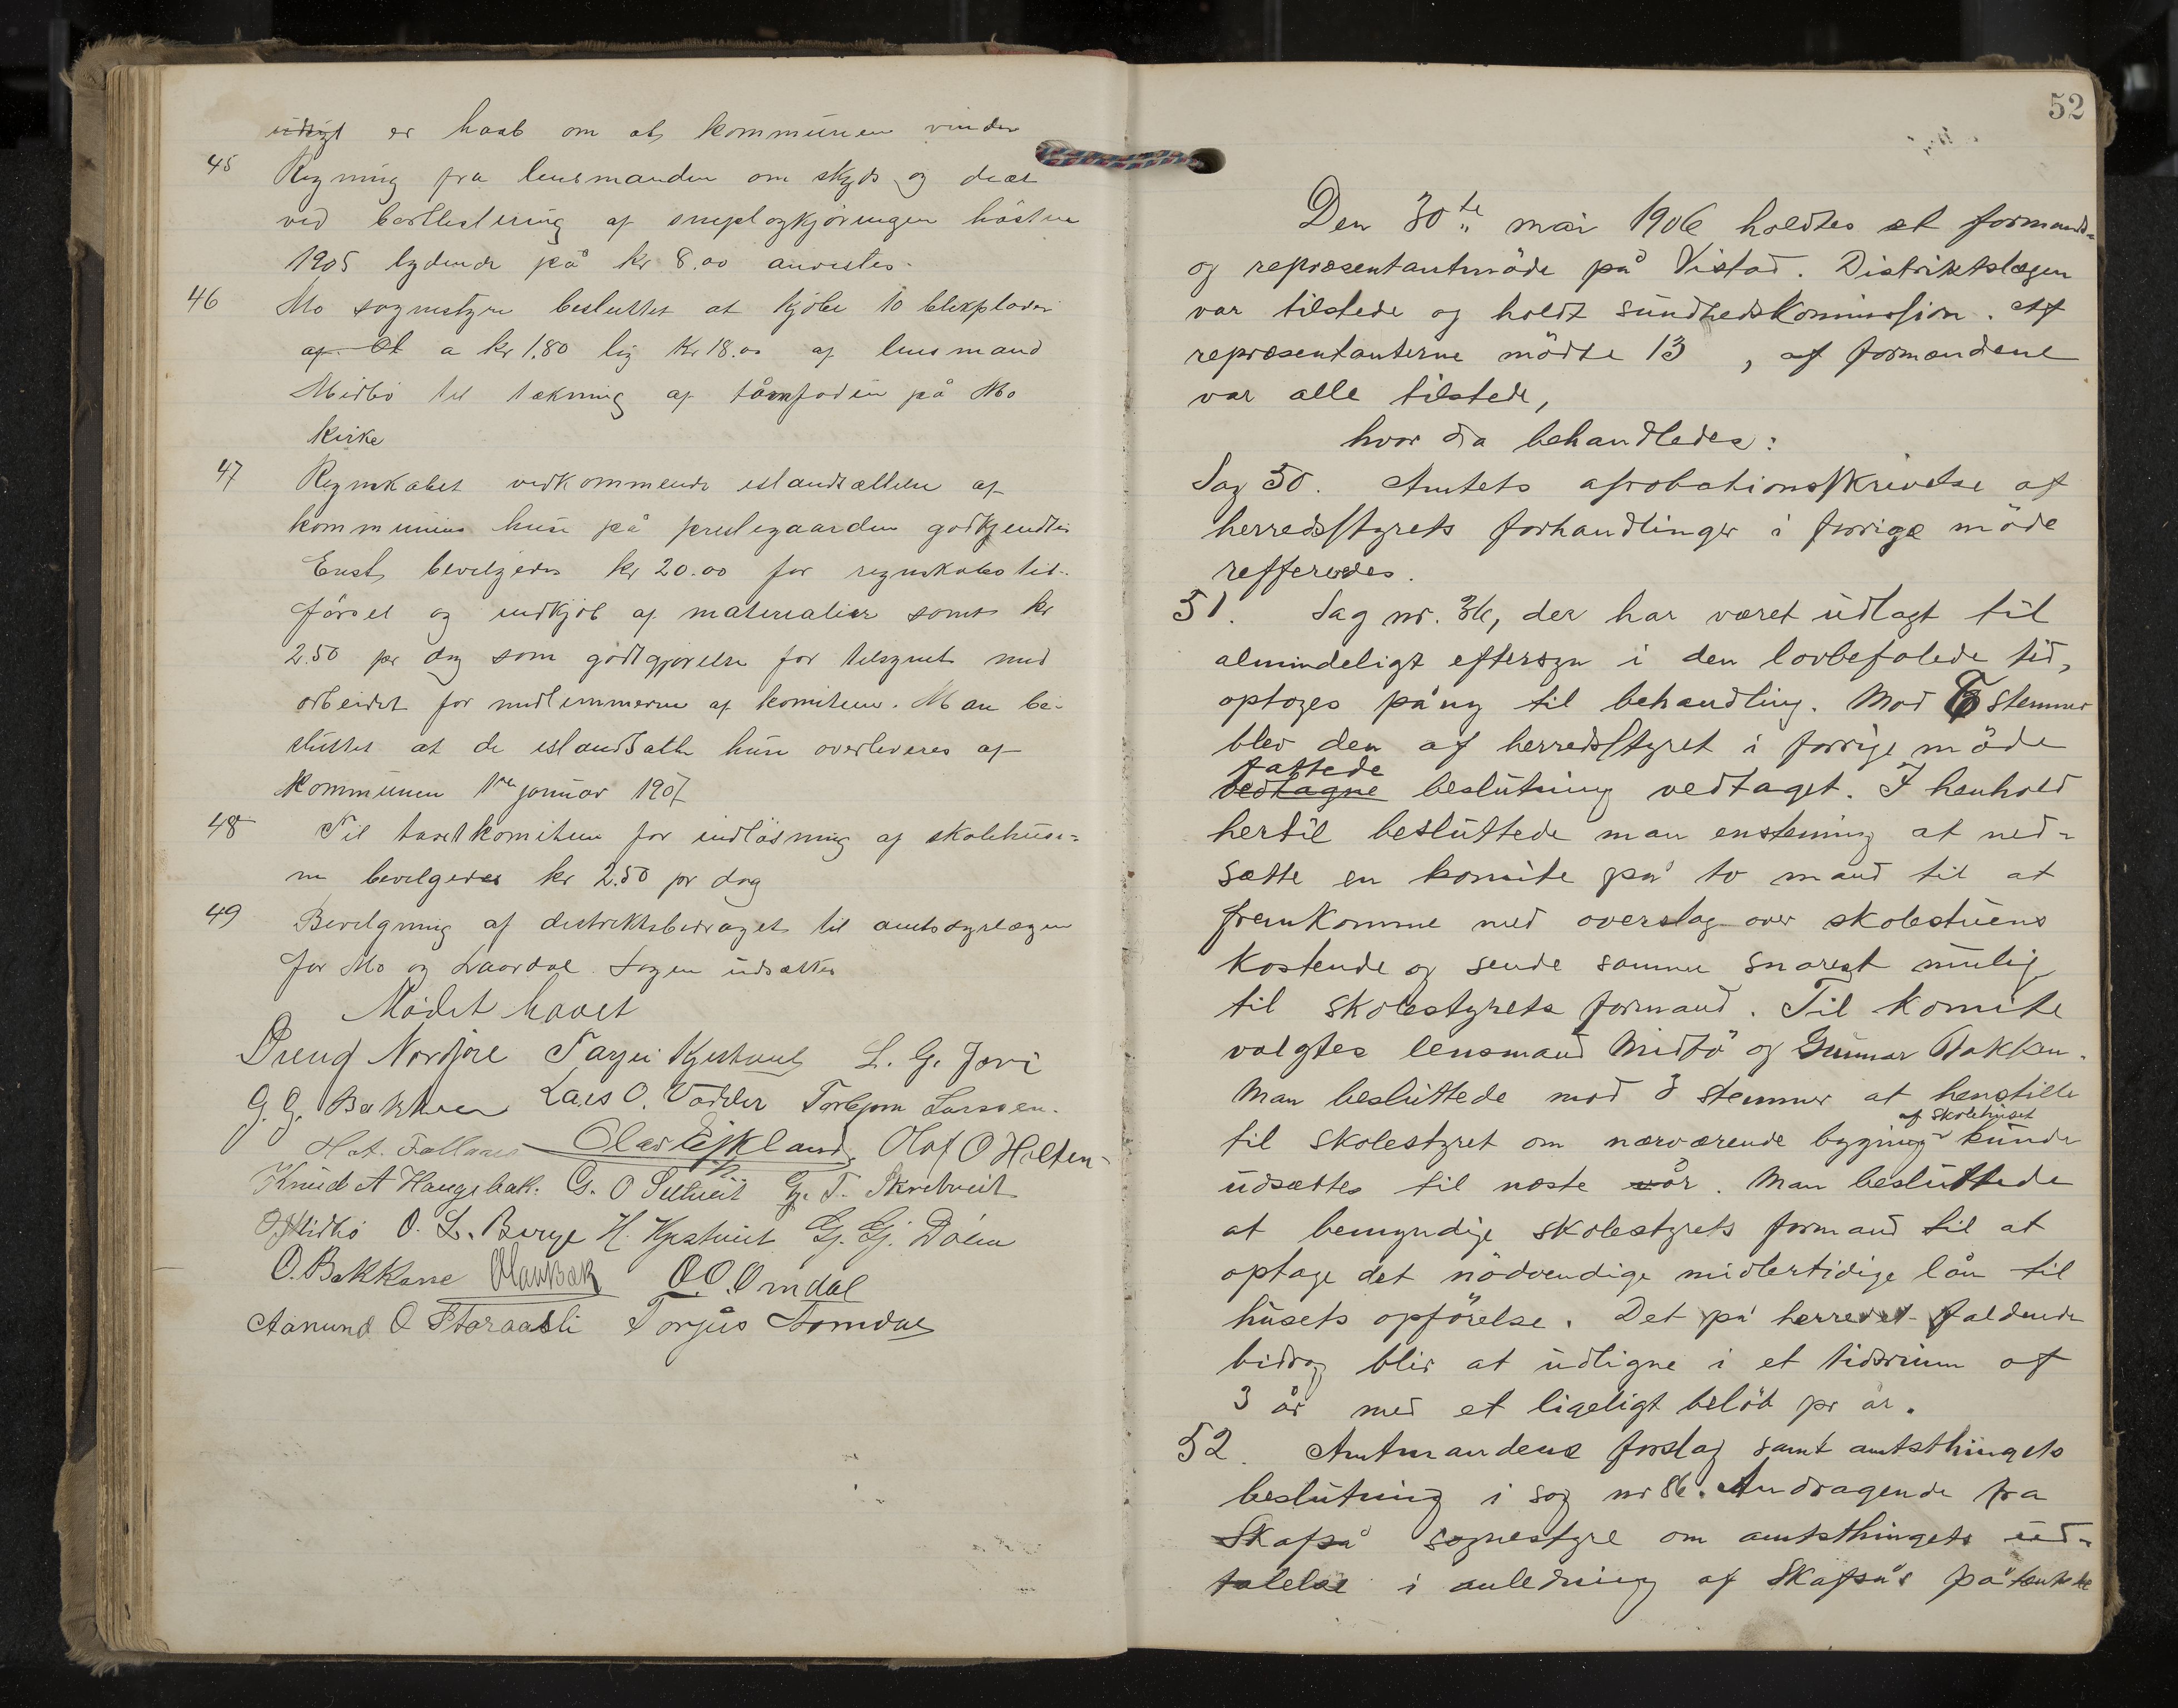 er haab om at kommunen vinder
45 Regning fra lensmanden om skyds og diæt
ved bortlisitering af sneplogkjøringen høsten
1905 lydende på kr 8.00 anvistes.
46 Mo sognestyre besluttet at kjöbe 10 blikplader
a kr 1.80 lig Kr 18.00 af lensmand
Midbö til tækning af tårnfoden på Mo
kirke
47 Regnskabet vedkommende istandsættelse af
kommunens huse på prestegaarden godkjendtes
Enst. bevilgedes kr 20.00 for regnskabets til-
försel og indkjöb af materialier samt kr
2.50 pr dag som godtgjørelse for tilsynet med
arbeidet for medlemmerne af komiteen. Man be-
sluttet at de istandsatte huse overleveres af
kommunen 1ste januar 1907
48 Til takstkomiteen for indlösning af skolehuse-
ne bevilgedes kr 2.50 pr dag
49 Bevilgning af distriktsbidraget til amtsdyrlægen
for Mo og Laardal. Sagen udsættes
Mödet hævet
Dreng Nordjore L. G. Jori
G. G. Bakken Lars O. Vadder Torbjørn Larssen.
Olav Eiskland Olaf O Holten
Knud A Haugebak. G. O G. T. Skretveit
O Midbö O. L. Berge H. Kjestveit G. Gj. Dalen
O. Bakkane O. O. Omdal
Aanund O Storaasli Torjus Aamdal
52
Den 30te mai 1906 holdtes et formands-
og repræsentantmöde på Vistad. Distriktslægen
var tilstede og holdt sundhedskommission. Af
repræsentanterne mödte 13, af formændene
var alle tilstede,
hvor da behandledes:
Sag 50. Amtets aprobationsskrivelse af
herredsstyrets forhandlinger i forrige möde
refferedes.
51. Sag nr. 36, der har været udlagt til
almindeligt eftersyn i den lovbefalede tid,
optoges påny til behandling. Mod 6 stemmer
blev den af herredsstyret i forrige möde
fattede
vedtagne beslutning vedtaget. I henhold
hertil besluttede man enstemmig at ned-
sætte en komite på to mand til at
fremkomme med overslag over skolestuens
kostende og sende samme snarest mulig
til skolestyrets formand. Til komite
valgtes lensmand Midbö og Gunnar Bakken.
Man besluttede mod 3 stemmer at henstille
af skolehuset
til skolestyret om nærværende bygning kunde
udsættes til næste vår. Man besluttede
at bemyndige skolestyrets formand til at
optage det nödvendige midlertidige lån til
husets opförelse. Det på herredet faldende
bidrag blir at udligne i et tidsrum af
3 år med et ligeligt belöb pr år.
52. Amtmandens forslag samt amtsthingets
beslutning i sag nr 86. Andragende fra
Skafså sognestyre om amtsthingets ud-
talelse i anledning af Skafså's påtænkte